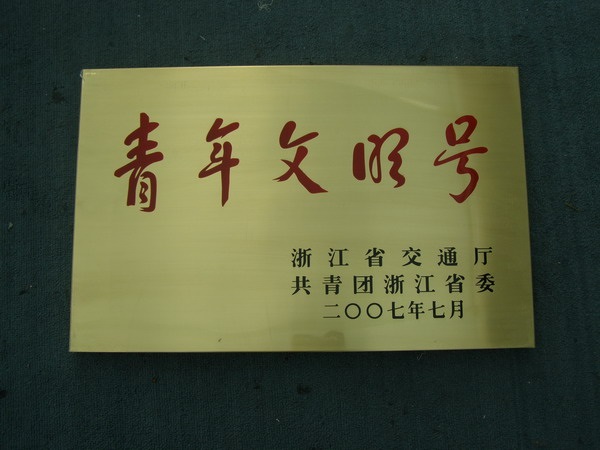 青年文明号
浙江省交通厅
共青团浙江省委
二〇〇七年七月